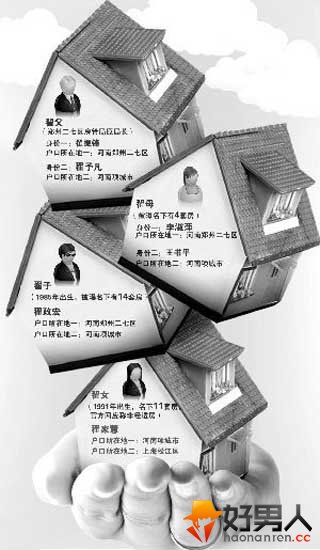 翟父
(郑州二七区房管局原局长)
身份一:翟振锋
户口所在地一:河南郑州二七区
身份二:翟予凡
户口所在地二:河南项城市
翟母
(被曝名下有4套房)
身份一:李淑萍
户口所在地一:河南郑州二七区
身份二:王若平
户口所在地二:河南项城市
翟子
(1985年出生,被曝名下有14套房)
翟政宏
户口所在地一:河南郑州二七区
户口所在地二:河南项城市
翟女
(1991年出生,名下11套房,
官方回应称非经适房)
翟家慧
户口所在地一:河南项城市
户口所在地二:上海松江区
好男人
haonanren.cc